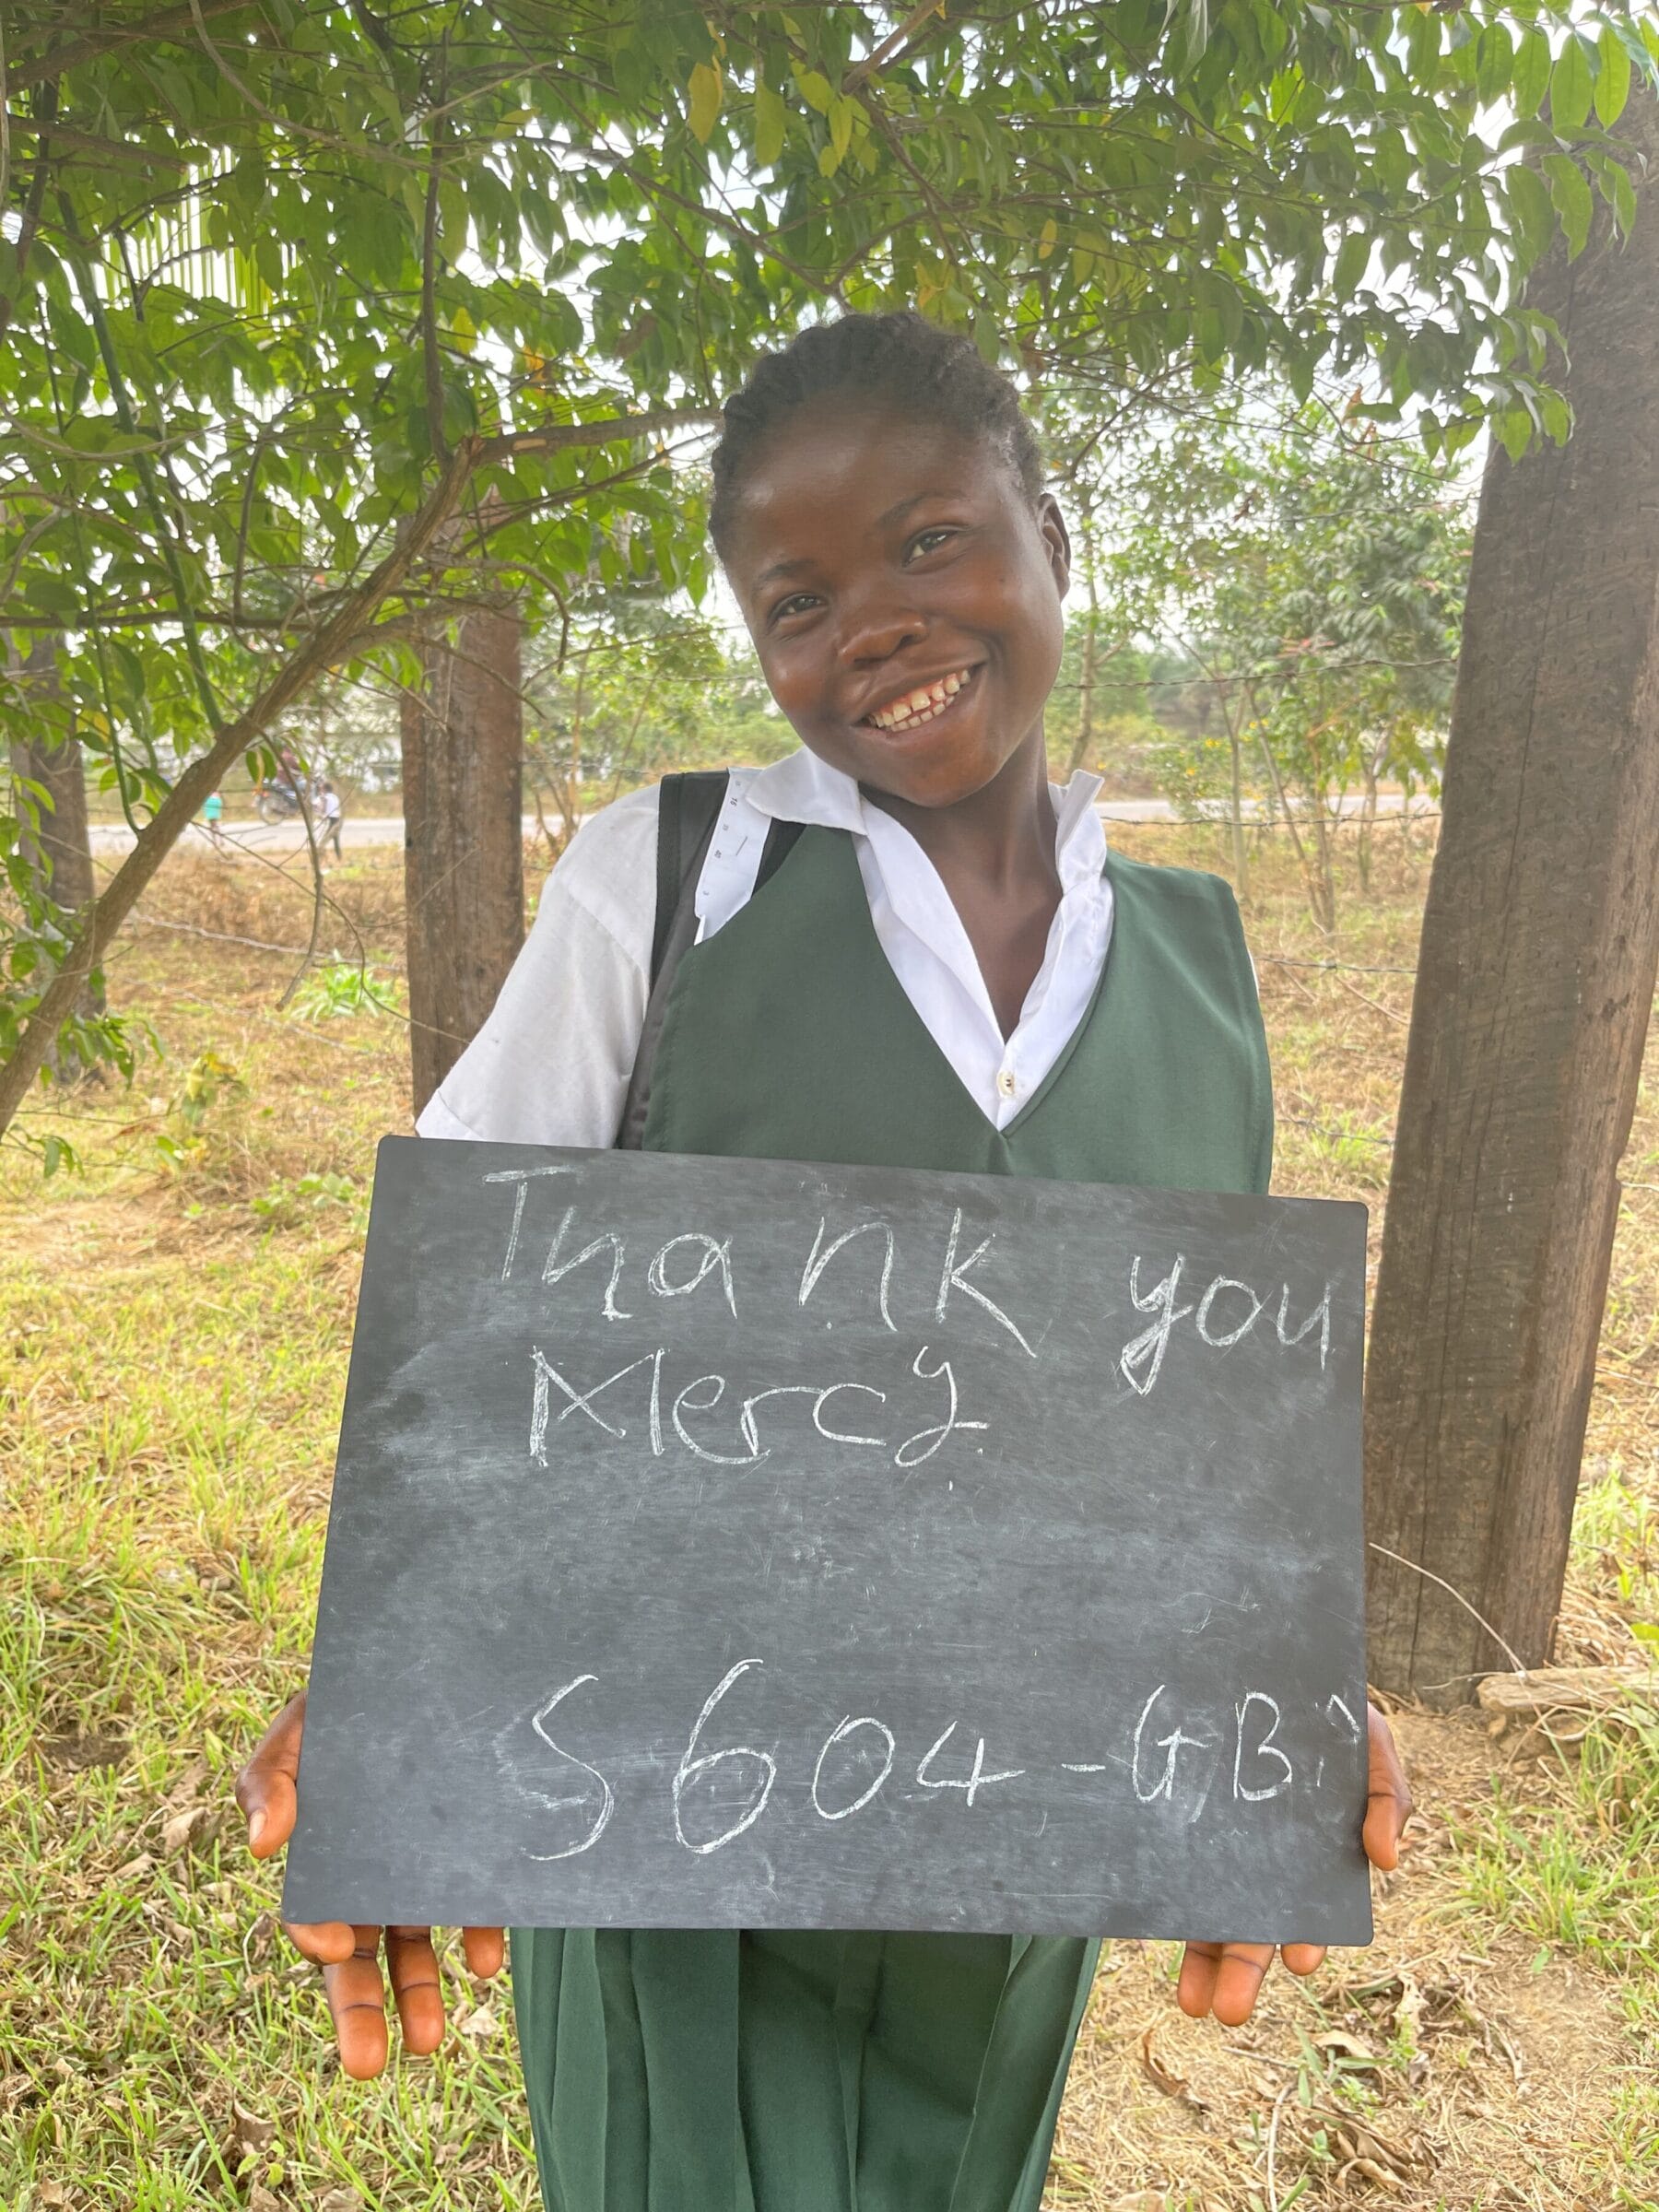 Thank you
Mercy
S604-GB